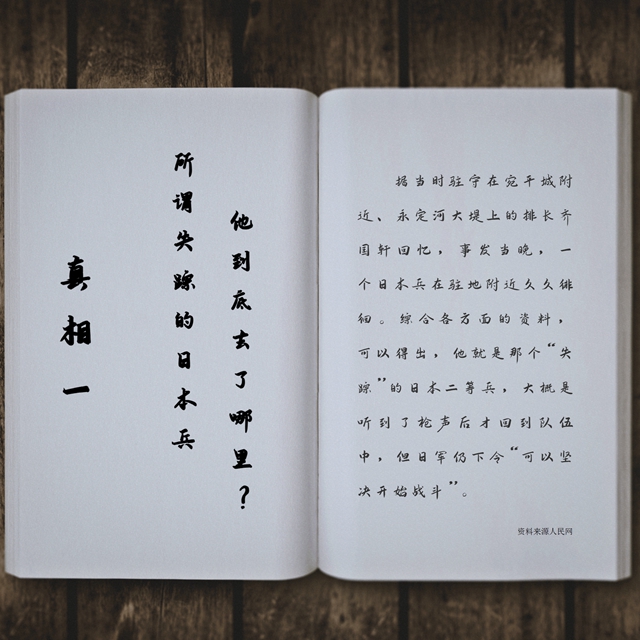 真相一
所谓失踪的日本兵
他到底去了哪里？
据当时驻守在宛平城附
近、永定河大堤上的排长齐
国轩回忆，事发当晚，一
个日本兵在驻地附近久久徘
徊。综合各方面的资料，
可以得出，他就是那个“失
踪”的日本二等兵，大概是
听到了枪声后才回到队伍
中，但日军仍下令“可以坚
决开始战斗”。
资料来源人民网